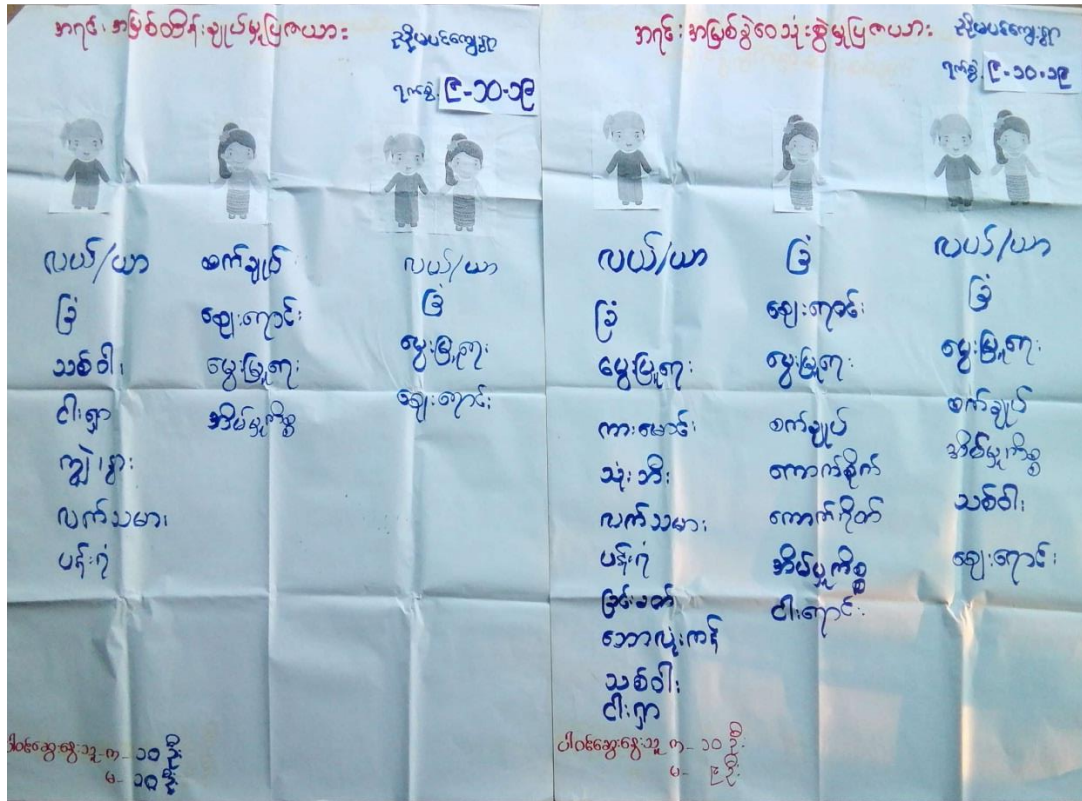 အရင်းအမြစ်ထိန်းချုပ်မှုပြဇယား
ညှိုးပင်ကျေးရွာ
ရက်စွဲ ၉-၁၀-၁၉
လယ်/ယာ
ခြံ
သစ်ဝါး
ငါးရှာ
ကျွဲ၊နွား
လက်သမား
ပန်းရံ
စက်ချုပ်
ဈေးရောင်း
မွေးမြူရေး
အိမ်မှုကိစ္စ
လယ်/ယာ
ခြံ
မွေးမြူရေး
ဈေးရောင်း
ပါဝင်ဆွေးနွေးသူ ကျ- ၁၀ ဦး
မ- ၁၀ ဦး
အရင်းအမြစ်ခွဲဝေသုံးစွဲမှုပြဇယား
ရက်စွဲ ၉-၁၀-၁၉
လယ်/ယာ
ခြံ
မွေးမြူရေး
ကားမောင်း
သုံးဘီး
လက်သမား
ပန်းရံ
ခြင်းခတ်
ဘောလုံးကန်
သစ်ဝါး
ငါးရှာ
ခြံ
ဈေးရောင်း
မွေးမြူရေး
စက်ချုပ်
ကောက်စိုက်
ကောက်ရိတ်
အိမ်မှုကိစ္စ
ငါးရောင်း
လယ်/ယာ
ခြံ
မွေးမြူရေး
စက်ချုပ်
အိမ်မှုကိစ္စ
သစ်ဝါး
ဈေးရောင်း
ပါဝင်ဆွေးနွေးသူ ကျ- ၁၀ ဦး
မ- ၉ ဦး